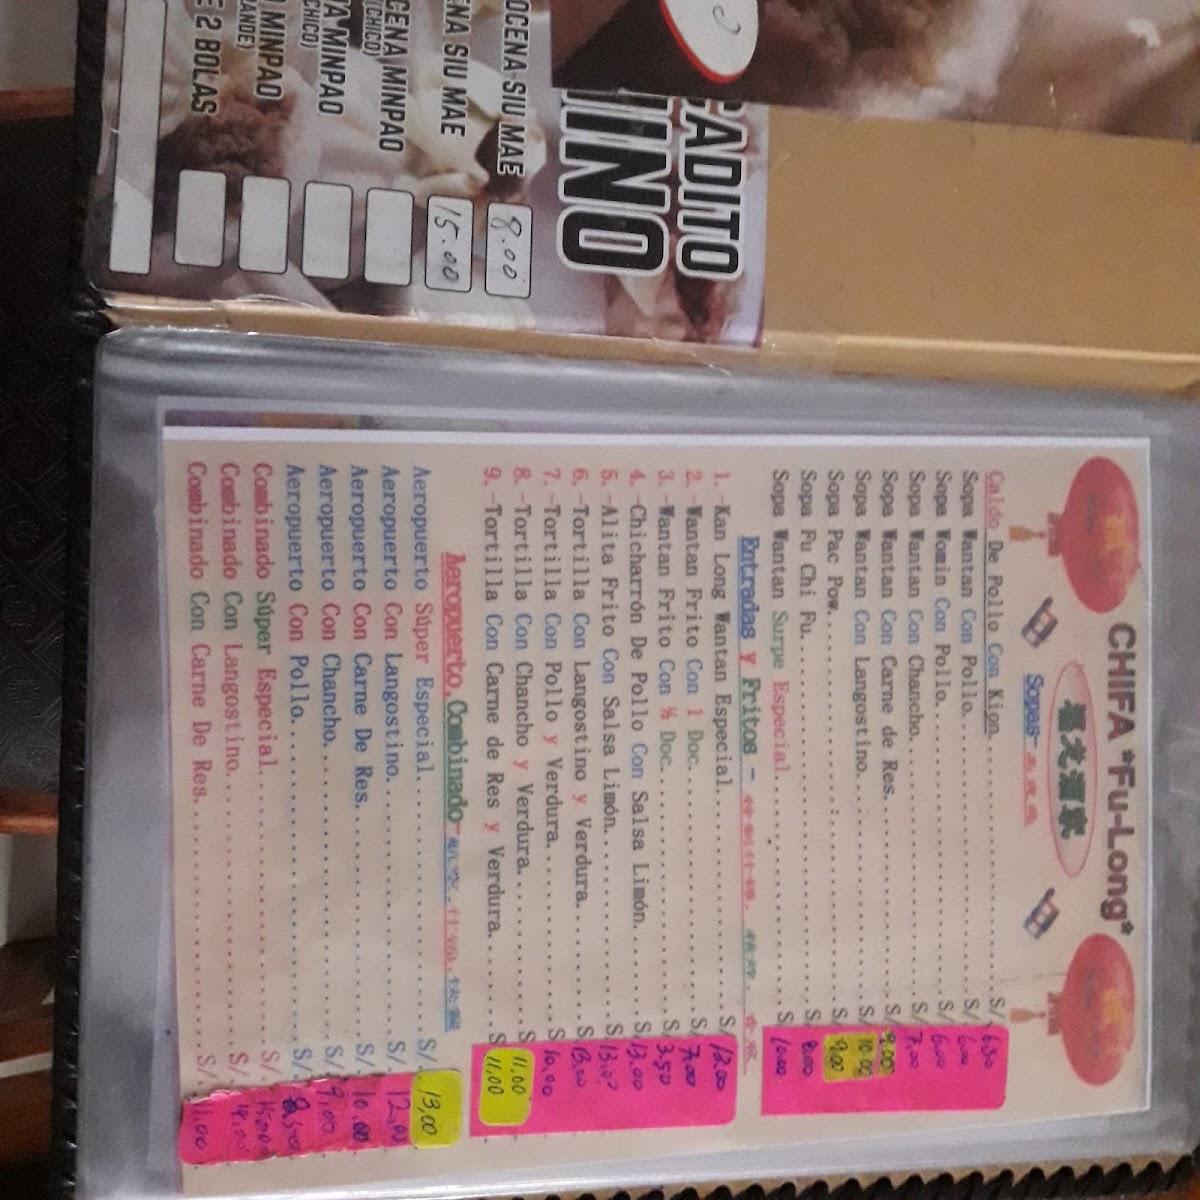 CADITO
HINO
OCENA SIU MAE 8.00
ENA SIU MAE 15.00
CENA MINPAO
(CHICO)
A MINPAO
CHICO)
MINPAO
ANDE)
E 2 BOLAS
CHIFA *Fu-Long*
Sopas-
Caldo De Pollo Con Kion S/ 6.50
Sopa Wantan Con Pollo S/ 6.00
Sopa Womin Con Pollo S/ 6.00
Sopa Wantan Con Chancho S/ 7.00
Sopa Wantan Con Carne de Res. S/ 9.00
Sopa Wantan Con Langostino S/ 10.00
Sopa Pac Pow S/ 9.00
Sopa Fu Chi Fu S/ 8.00
Sopa Wantan Surpe Especial S/ 10.00
Entradas y Fritos -
1.-Kan Long Wantan Especial S/ 12.00
2.-Wantan Frito Con 1 Doc. S/ 7.00
3.-Wantan Frito Con ½ Doc. S 3.50
4.-Chicharrón De Pollo Con Salsa Limón S 13.00
5.-Alita Frito Con Salsa Limón S 13.00
6.-Tortilla Con Langostino y Verdura S 13.00
7.-Tortilla Con Pollo y Verdura S 10.00
8.-Tortilla Con Chancho y Verdura S 11.00
9.-Tortilla Con Carne de Res y Verdura S 11.00
Aeropuerto, Combinado-
Aeropuerto Súper Especial S/. 13,00
Aeropuerto Con Langostino S/. 12.00
Aeropuerto Con Carne De Res S/. 10.00
Aeropuerto Con Chancho S/. 9.00
Aeropuerto Con Pollo S/.
Combinado Súper Especial S/. 15.00
Combinado Con Langostino S/. 14.00
Combinado Con Carne De Res S/. 11.00